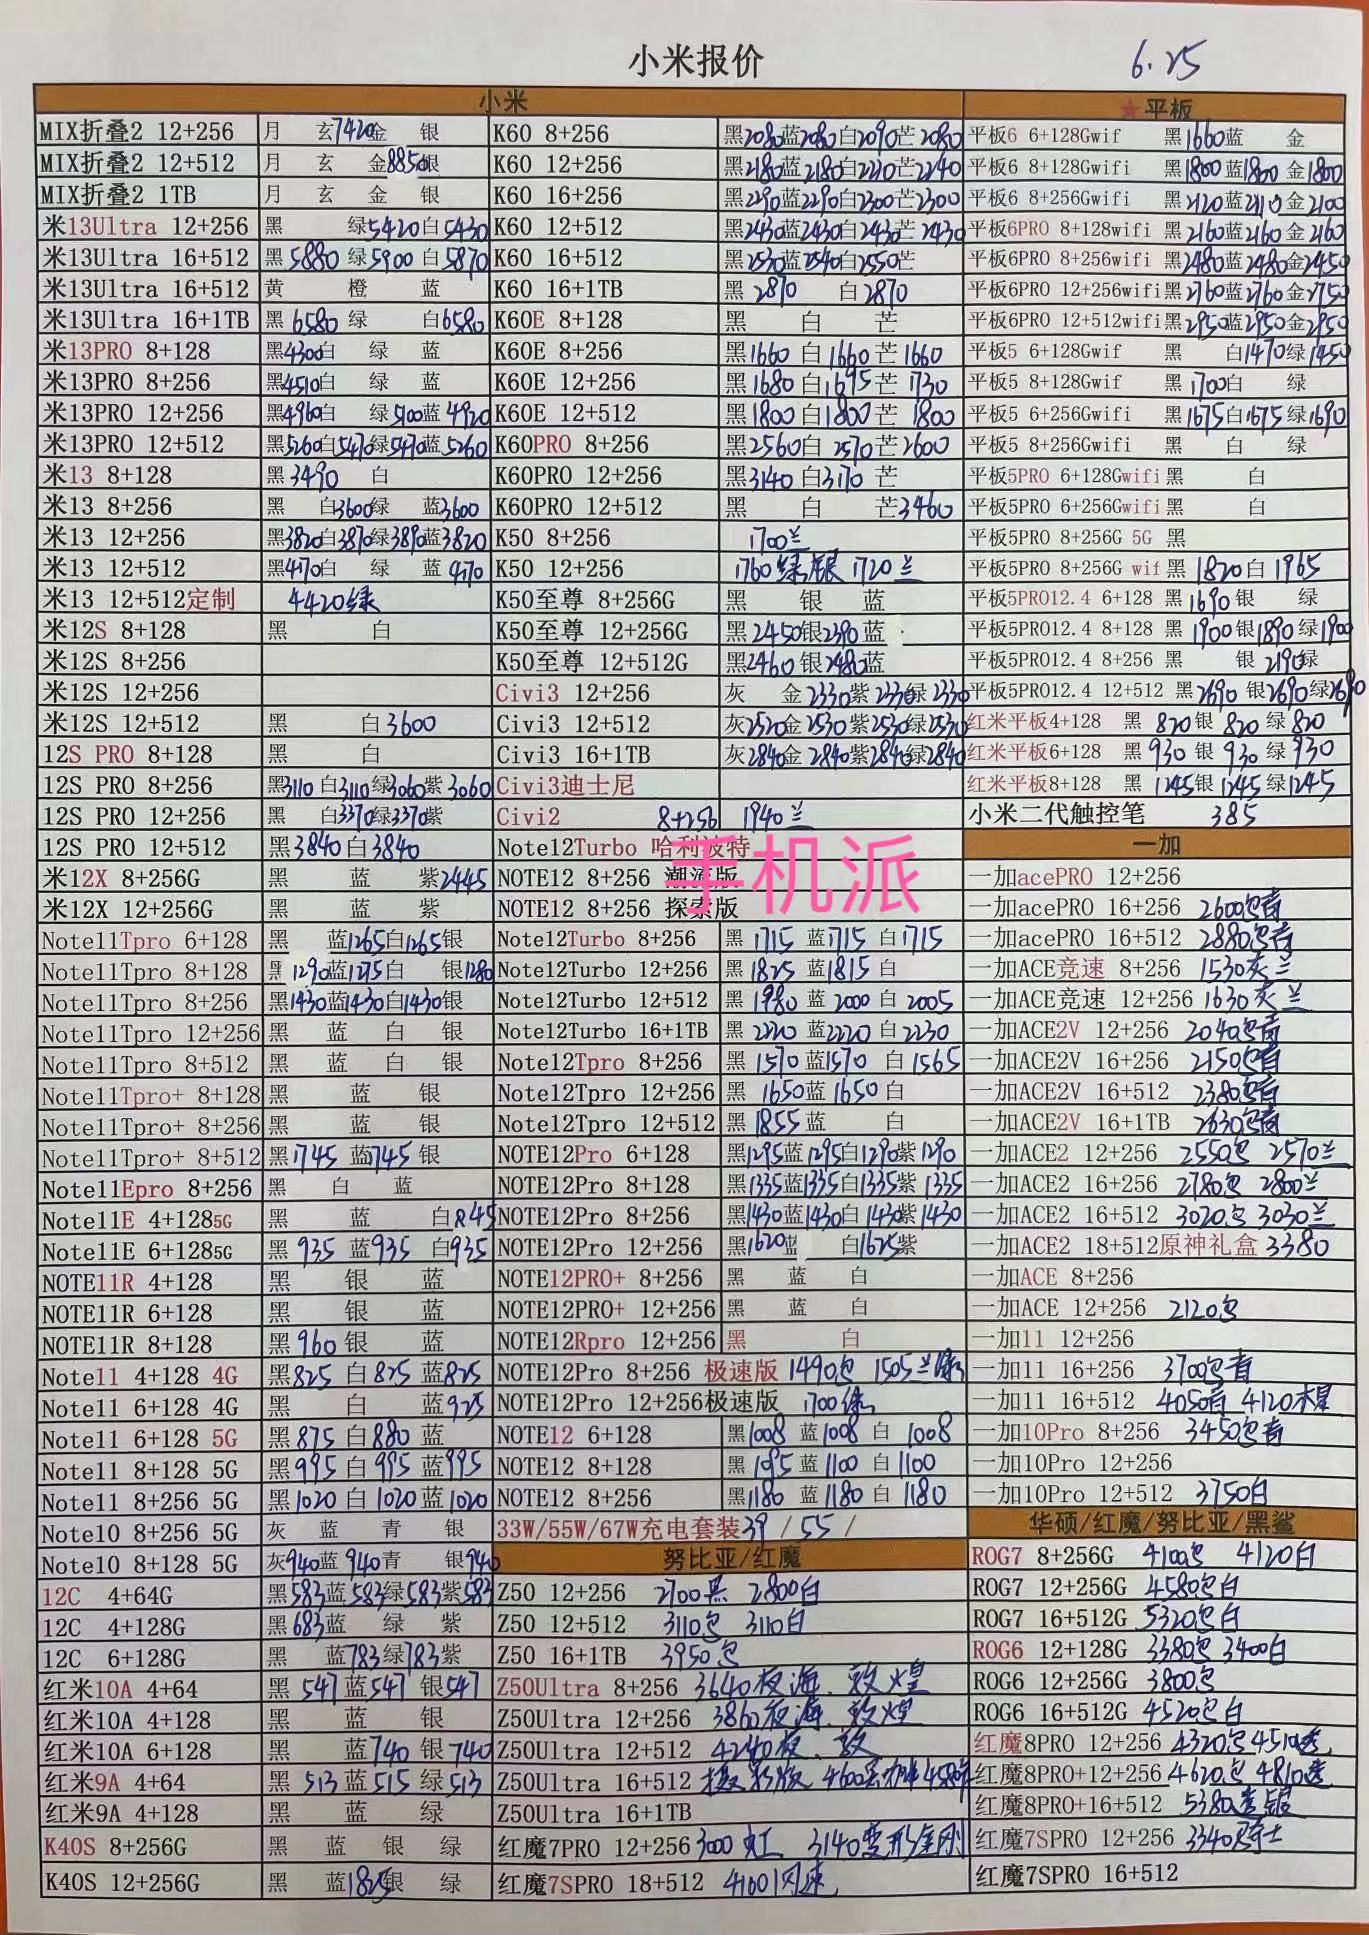 小米报价 6.25
小米
MIX折叠2 12+256 月 玄7420金 银
MIX折叠2 12+512 月 玄 金8850银
MIX折叠2 1TB 月 玄 金 银
米13Ultra 12+256 黑 绿5420白5430
米13Ultra 16+512 黑5880绿5900白5870
米13Ultra 16+512 黄 橙 蓝
米13Ultra 16+1TB 黑6580绿 白6580
米13PRO 8+128 黑4300白 绿 蓝
米13PRO 8+256 黑4510白 绿 蓝
米13PRO 12+256 黑4960白 绿5100蓝4920
米13PRO 12+512 黑5260白5470绿5470蓝5260
米13 8+128 黑3490 白
米13 8+256 黑 白3600绿 蓝3600
米13 12+256 黑3820白3870绿3890蓝3820
米13 12+512 黑4170白 绿 蓝4170
米13 12+512定制 4420绿
米12S 8+128 黑 白
米12S 8+256
米12S 12+256
米12S 12+512 黑 白3600
12S PRO 8+128 黑 白
12S PRO 8+256 黑3110白3110绿3060紫3060
12S PRO 12+256 黑 白3370绿3370紫
12S PRO 12+512 黑3840白3840
米12X 8+256G 黑 蓝 紫2445
米12X 12+256G 黑 蓝 紫
Note11Tpro 6+128 黑 蓝1265白1265银
Note11Tpro 8+128 黑1290蓝1275白 银1280
Note11Tpro 8+256 黑1430蓝1430白1430银
Note11Tpro 12+256 黑 蓝 白 银
Note11Tpro 8+512 黑 蓝 白 银
Note11Tpro+ 8+128 黑 蓝 银
Note11Tpro+ 8+256 黑 蓝 银
Note11Tpro+ 8+512 黑1745 蓝1745 银
Note11Epro 8+256 黑 白 蓝
Note11E 4+1285G 黑 蓝 白
Note11E 6+1285G 黑935 蓝935 白935
NOTE11R 4+128 黑 银 蓝
NOTE11R 6+128 黑 银 蓝
NOTE11R 8+128 黑960银 蓝
Note11 4+128 4G 黑825白825蓝825
Note11 6+128 4G 黑 白 蓝925
Note11 6+128 5G 黑875白880蓝
Note11 8+128 5G 黑995白995蓝995
Note11 8+256 5G 黑1020白1020蓝1020
Note10 8+256 5G 灰 蓝 青 银
Note10 8+128 5G 灰940蓝940青 银940
12C 4+64G 黑583蓝583绿583紫583
12C 4+128G 黑683蓝 绿 紫
12C 6+128G 黑 蓝783绿783紫
红米10A 4+64 黑547蓝547银547
红米10A 4+128 黑 蓝 银
红米10A 6+128 黑 蓝740银740
红米9A 4+64 黑513蓝515绿513
红米9A 4+128 黑 蓝 绿
K40S 8+256G 黑 蓝 银 绿
K40S 12+256G 黑 蓝1825银 绿
K60 8+256 黑2080蓝2080白2090芒2080
K60 12+256 黑2180蓝2180白2210芒2240
K60 16+256 黑2290蓝2290白2300芒2300
K60 12+512 黑2430蓝2430白2430芒2430
K60 16+512 黑2530蓝2540白2550芒
K60 16+1TB 黑2870 白2870
K60E 8+128 黑 白 芒
K60E 8+256 黑1660白1660芒1660
K60E 12+256 黑1680白1695芒1730
K60E 12+512 黑1800白1800芒1800
K60PRO 8+256 黑2560白2570芒2600
K60PRO 12+256 黑3140白3170芒
K60PRO 12+512 黑 白 芒3460
K50 8+256 1700兰
K50 12+256 1760绿银 1720兰
K50至尊 8+256G 黑 银 蓝
K50至尊 12+256G 黑2450银2390蓝
K50至尊 12+512G 黑2460银2480蓝
Civi3 12+256 灰 金2330紫2330绿2330
Civi3 12+512 灰2520金2530紫2530绿2530
Civi3 16+1TB 灰2840金2840紫2840绿2840
Civi3迪士尼
Civi2 8+256 1940兰
Note12Turbo 哈利波特
手机派
NOTE12 8+256 潮流版
NOTE12 8+256 探索版
Note12Turbo 8+256 黑1715蓝1715白1715
Note12Turbo 12+256 黑1825蓝1815白
Note12Turbo 12+512 黑1980蓝2000白2005
Note12Turbo 16+1TB 黑2220蓝2220白2230
Note12Tpro 8+256 黑1570蓝1570白1565
Note12Tpro 12+256 黑1650蓝1650白
Note12Tpro 12+512 黑1855蓝 白
NOTE12Pro 6+128 黑1295蓝1295白1290紫1290
NOTE12Pro 8+128 黑1335蓝1335白1335紫1335
NOTE12Pro 8+256 黑1430蓝1430白1430紫1430
NOTE12Pro 12+256 黑1620蓝 白1625紫
NOTE12PRO+ 8+256 黑 蓝 白
NOTE12PRO+ 12+256 黑 蓝 白
NOTE12Rpro 12+256 黑 白
NOTE12Pro 8+256 极速版 1490包 1505兰绿
NOTE12Pro 12+256极速版 1700绿
NOTE12 6+128 黑1008蓝1008白1008
NOTE12 8+128 黑1095蓝1100白1100
NOTE12 8+256 黑1180蓝1180白1180
33W/55W/67W充电套装39 / 55 /
努比亚/红魔
Z50 12+256 2700黑 2800白
Z50 12+512 3110包 3110白
Z50 16+1TB 3950包
Z50Ultra 8+256 3640夜海、敦煌
Z50Ultra 12+256 3860夜海、敦煌
Z50Ultra 12+512 4240夜、敦
Z50Ultra 16+512 摄影版 4600
Z50Ultra 16+1TB
红魔7PRO 12+256 3000虹 3140变形金刚
红魔7SPRO 18+512 4100闪速
★平板
平板6 6+128Gwif 黑1660蓝 金
平板6 8+128Gwifi 黑1800蓝1800金1800
平板6 8+256Gwifi 黑2120蓝2110金2100
平板6PRO 8+128wifi 黑2160蓝2160金2160
平板6PRO 8+256wifi 黑2480蓝2480金2450
平板6PRO 12+256wifi黑2760蓝2760金2750
平板6PRO 12+512wifi黑2950蓝2950金2950
平板5 6+128Gwif 黑 白1470绿1450
平板5 8+128Gwif 黑1700白 绿
平板5 6+256Gwifi 黑1675白1675绿1690
平板5 8+256Gwifi 黑 白 绿
平板5PRO 6+128Gwifi黑 白
平板5PRO 6+256Gwifi黑 白
平板5PRO 8+256G 5G 黑
平板5PRO 8+256G wif黑1820白1965
平板5PRO12.4 6+128 黑1690银 绿
平板5PRO12.4 8+128 黑1900银1890绿1900
平板5PRO12.4 8+256 黑 银2190绿
平板5PRO12.4 12+512 黑2690银2690绿2690
红米平板4+128 黑820银820绿820
红米平板6+128 黑930银930绿930
红米平板8+128 黑1245银1245绿1245
小米二代触控笔 385
一加
一加acePRO 12+256
一加acePRO 16+256 2600包青
一加acePRO 16+512 2880包青
一加ACE竞速 8+256 1530灰兰
一加ACE竞速 12+256 1630灰兰
一加ACE2V 12+256 2040包青
一加ACE2V 16+256 2150包青
一加ACE2V 16+512 2380包青
一加ACE2V 16+1TB 2630包青
一加ACE2 12+256 2550包 2570兰
一加ACE2 16+256 2780包 2800兰
一加ACE2 16+512 3020包 3030兰
一加ACE2 18+512原神礼盒 3380
一加ACE 8+256
一加ACE 12+256 2120包
一加11 12+256
一加11 16+256 3700包青
一加11 16+512 4050青 4120木星
一加10Pro 8+256 3450包青
一加10Pro 12+256
一加10Pro 12+512 3750白
华硕/红魔/努比亚/黑鲨
ROG7 8+256G 4100包 4120白
ROG7 12+256G 4580包白
ROG7 16+512G 5320包白
ROG6 12+128G 3380包 3400白
ROG6 12+256G 3800包
ROG6 16+512G 4520包白
红魔8PRO 12+256 4320包4510透
红魔8PRO+12+256 4620包 4810透
红魔8PRO+16+512 5380透银
红魔7SPRO 12+256 3340骑士
红魔7SPRO 16+512